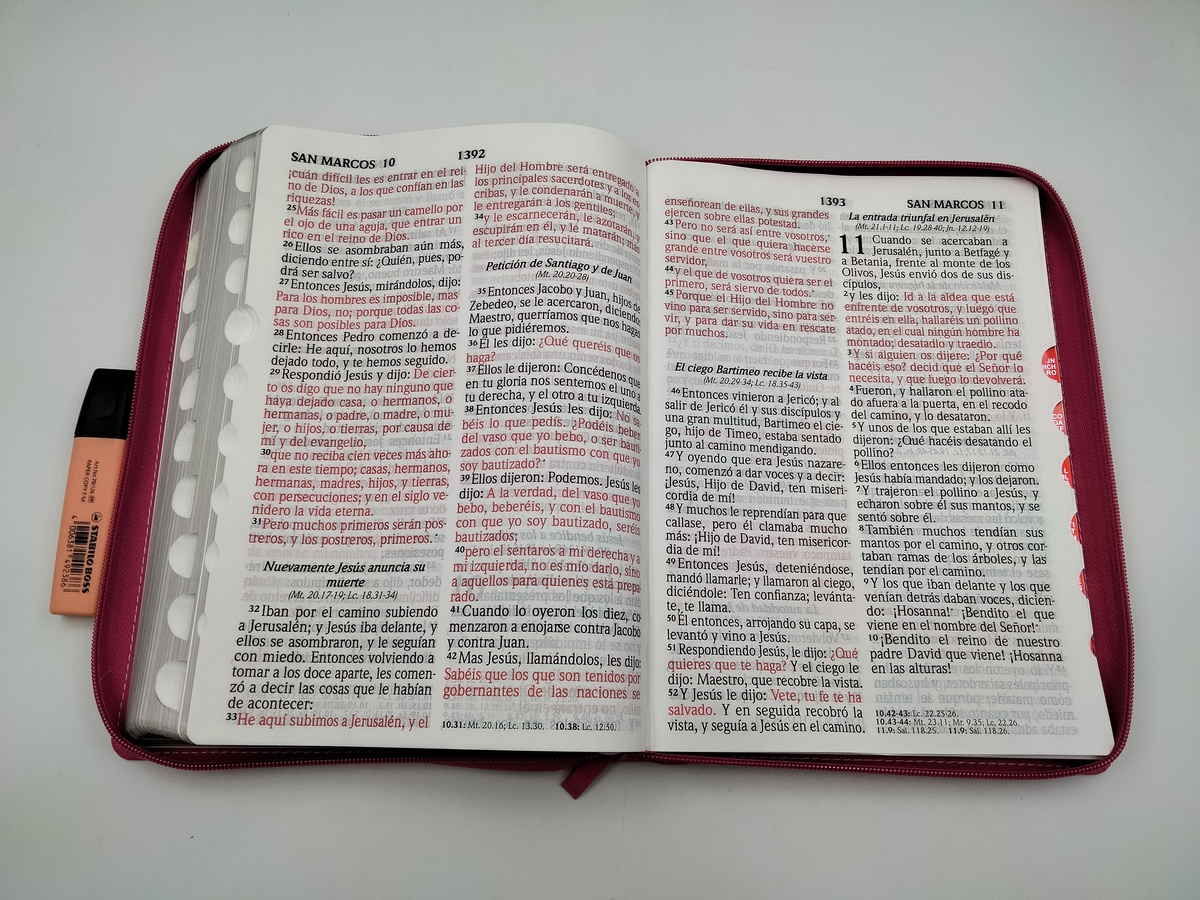 SAN MARCOS 10
1392
¡cuán difícil les es entrar en el rei-
no de Dios, a los que confían en las
riquezas!
25 Más fácil es pasar un camello por
el ojo de una aguja, que entrar un
rico en el reino de Dios.
26 Ellos se asombraban aún más,
diciendo entre sí: ¿Quién, pues, po-
drá ser salvo?
27 Entonces Jesús, mirándolos, dijo:
Para los hombres es imposible, mas
para Dios, no; porque todas las co-
sas son posibles para Dios.
28 Entonces Pedro comenzó a de-
cirle: He aquí, nosotros lo hemos
dejado todo, y te hemos seguido.
29 Respondió Jesús y dijo: De cier-
to os digo que no hay ninguno que
haya dejado casa, o hermanos, o
hermanas, o padre, o madre, o mu-
jer, o hijos, o tierras, por causa de
mí y del evangelio,
30 que no reciba cien veces más aho-
ra en este tiempo; casas, hermanos,
hermanas, madres, hijos, y tierras,
con persecuciones; y en el siglo ve-
nidero la vida eterna.
31 Pero muchos primeros serán pos-
treros, y los postreros, primeros.
Nuevamente Jesús anuncia su
muerte
(Mt. 20.17-19; Lc. 18.31-34)
32 Iban por el camino subiendo
a Jerusalén; y Jesús iba delante, y
ellos se asombraron, y le seguían
con miedo. Entonces volviendo a
tomar a los doce aparte, les comen-
zó a decir las cosas que le habían
de acontecer:
33 He aquí subimos a Jerusalén, y el
Hijo del Hombre será entregado a
los principales sacerdotes y a los es-
cribas, y le condenarán a muerte, y
le entregarán a los gentiles;
34 y le escarnecerán, le azotarán, y
escupirán en él, y le matarán; mas
al tercer día resucitará.
Petición de Santiago y de Juan
(Mt. 20.20-28)
35 Entonces Jacobo y Juan, hijos de
Zebedeo, se le acercaron, diciendo:
Maestro, querríamos que nos hagas
lo que pidiéremos.
36 Él les dijo: ¿Qué queréis que os
haga?
37 Ellos le dijeron: Concédenos que
en tu gloria nos sentemos el uno a
tu derecha, y el otro a tu izquierda.
38 Entonces Jesús les dijo: No sa-
béis lo que pedís. ¿Podéis beber
del vaso que yo bebo, o ser bauti-
zados con el bautismo con que yo
soy bautizado?
39 Ellos dijeron: Podemos. Jesús les
dijo: A la verdad, del vaso que yo
bebo, beberéis, y con el bautismo
con que yo soy bautizado, seréis
bautizados;
40 pero el sentaros a mi derecha y a
mi izquierda, no es mío darlo, sino
a aquellos para quienes está prepa-
rado.
41 Cuando lo oyeron los diez, co-
menzaron a enojarse contra Jacobo
y contra Juan.
42 Mas Jesús, llamándolos, les dijo:
Sabéis que los que son tenidos por
gobernantes de las naciones se
10.31: Mt. 20.16; Lc. 13.30. 10.38: Lc. 12.50.
1393
SAN MARCOS 11
enseñorean de ellas, y sus grandes
ejercen sobre ellas potestad.
43 Pero no será así entre vosotros,
sino que el que quiera hacerse
grande entre vosotros será vuestro
servidor,
44 y el que de vosotros quiera ser el
primero, será siervo de todos.
45 Porque el Hijo del Hombre no
vino para ser servido, sino para ser-
vir, y para dar su vida en rescate
por muchos.
El ciego Bartimeo recibe la vista
(Mt. 20.29-34; Lc. 18.35-43)
46 Entonces vinieron a Jericó; y al
salir de Jericó él y sus discípulos y
una gran multitud, Bartimeo el cie-
go, hijo de Timeo, estaba sentado
junto al camino mendigando.
47 Y oyendo que era Jesús nazare-
no, comenzó a dar voces y a decir:
¡Jesús, Hijo de David, ten miseri-
cordia de mí!
48 Y muchos le reprendían para que
callase, pero él clamaba mucho
más: ¡Hijo de David, ten misericor-
dia de mí!
49 Entonces Jesús, deteniéndose,
mandó llamarle; y llamaron al ciego,
diciéndole: Ten confianza; levánta-
te, te llama.
50 Él entonces, arrojando su capa, se
levantó y vino a Jesús.
51 Respondiendo Jesús, le dijo: ¿Qué
quieres que te haga? Y el ciego le
dijo: Maestro, que recobre la vista.
52 Y Jesús le dijo: Vete, tu fe te ha
salvado. Y en seguida recobró la
vista, y seguía a Jesús en el camino.
La entrada triunfal en Jerusalén
(Mt. 21.1-11; Lc. 19.28-40; Jn. 12.12-19)
11 Cuando se acercaban a
Jerusalén, junto a Betfagé y
a Betania, frente al monte de los
Olivos, Jesús envió dos de sus dis-
cípulos,
2 y les dijo: Id a la aldea que está
enfrente de vosotros, y luego que
entréis en ella, hallaréis un pollino
atado, en el cual ningún hombre ha
montado; desatadlo y traedlo.
3 Y si alguien os dijere: ¿Por qué
hacéis eso? decid que el Señor lo
necesita, y que luego lo devolverá.
4 Fueron, y hallaron el pollino ata-
do afuera a la puerta, en el recodo
del camino, y lo desataron.
5 Y unos de los que estaban allí les
dijeron: ¿Qué hacéis desatando el
pollino?
6 Ellos entonces les dijeron como
Jesús había mandado; y los dejaron.
7 Y trajeron el pollino a Jesús, y
echaron sobre él sus mantos, y se
sentó sobre él.
8 También muchos tendían sus
mantos por el camino, y otros cor-
taban ramas de los árboles, y las
tendían por el camino.
9 Y los que iban delante y los que
venían detrás daban voces, dicien-
do: ¡Hosanna! ¡Bendito el que
viene en el nombre del Señor!
10 ¡Bendito el reino de nuestro
padre David que viene! ¡Hosanna
en las alturas!
10.42-43: Lc. 22.25-26.
10.43-44: Mt. 23.11; Mr. 9.35; Lc. 22.26.
11.9: Sal. 118.25. 11.9: Sal. 118.26.
STABILO BOSS
4 006381 492386